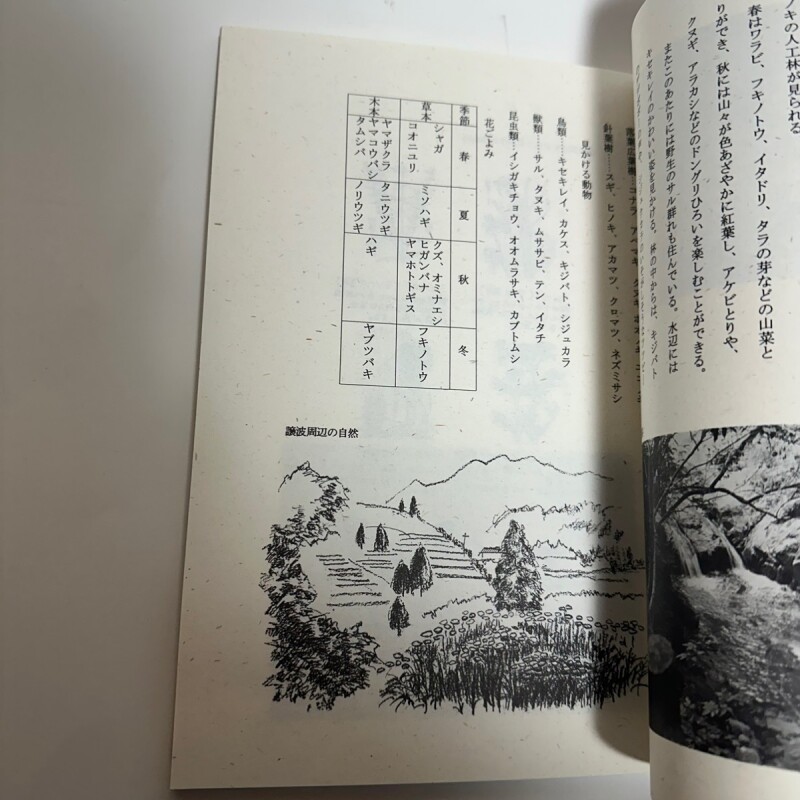 ノキの人工林が見られる
春はワラビ、フキノトウ、イタドリ、タラの芽などの山菜と
りができ、秋には山々が色あざやかに紅葉し、アケビとりや、
クヌギ、アラカシなどのドングリひろいを楽しむことができる。
またこのあたりには野生のサル群れも住んでいる。水辺には
キセキレイのかわいい姿を見かける。林の中からは、キジバト
落葉広葉樹…コナラ、アベマキ、
針葉樹……スギ、ヒノキ、アカマツ、クロマツ、ネズミサシ
見かける動物
鳥類……キセキレイ、カケス、キジバト、シジュカラ
獣類……サル、タヌキ、ムササビ、テン、イタチ
昆虫類…イシガキチョウ、オオムラサキ、カブトムシ
花ごよみ
季節 春 夏 秋 冬
草本 シャガ コオニユリ ミソハギ クズ、オミナエシ ヒガンバナ ヤマホトトギス フキノトウ
木本 ヤマザクラ ヤマコウバシ タムシバ タニウツギ ノリウツギ ハギ ヤブツバキ
譲波周辺の自然